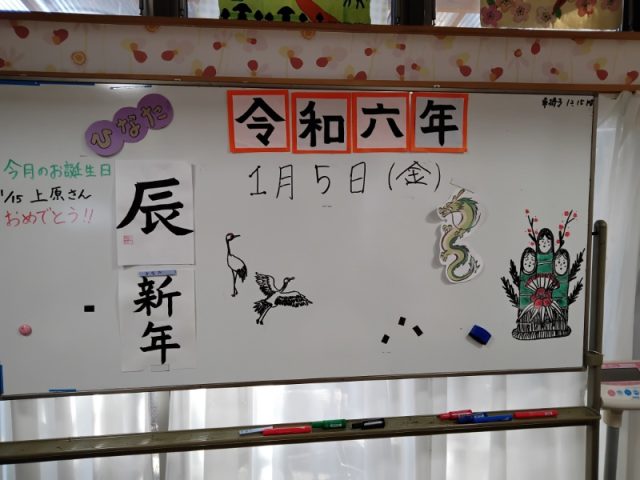 ひなた
令和六年
1月5日(金)
今月のお誕生日
1/15 上原さん
おめでとう!!
辰
新年